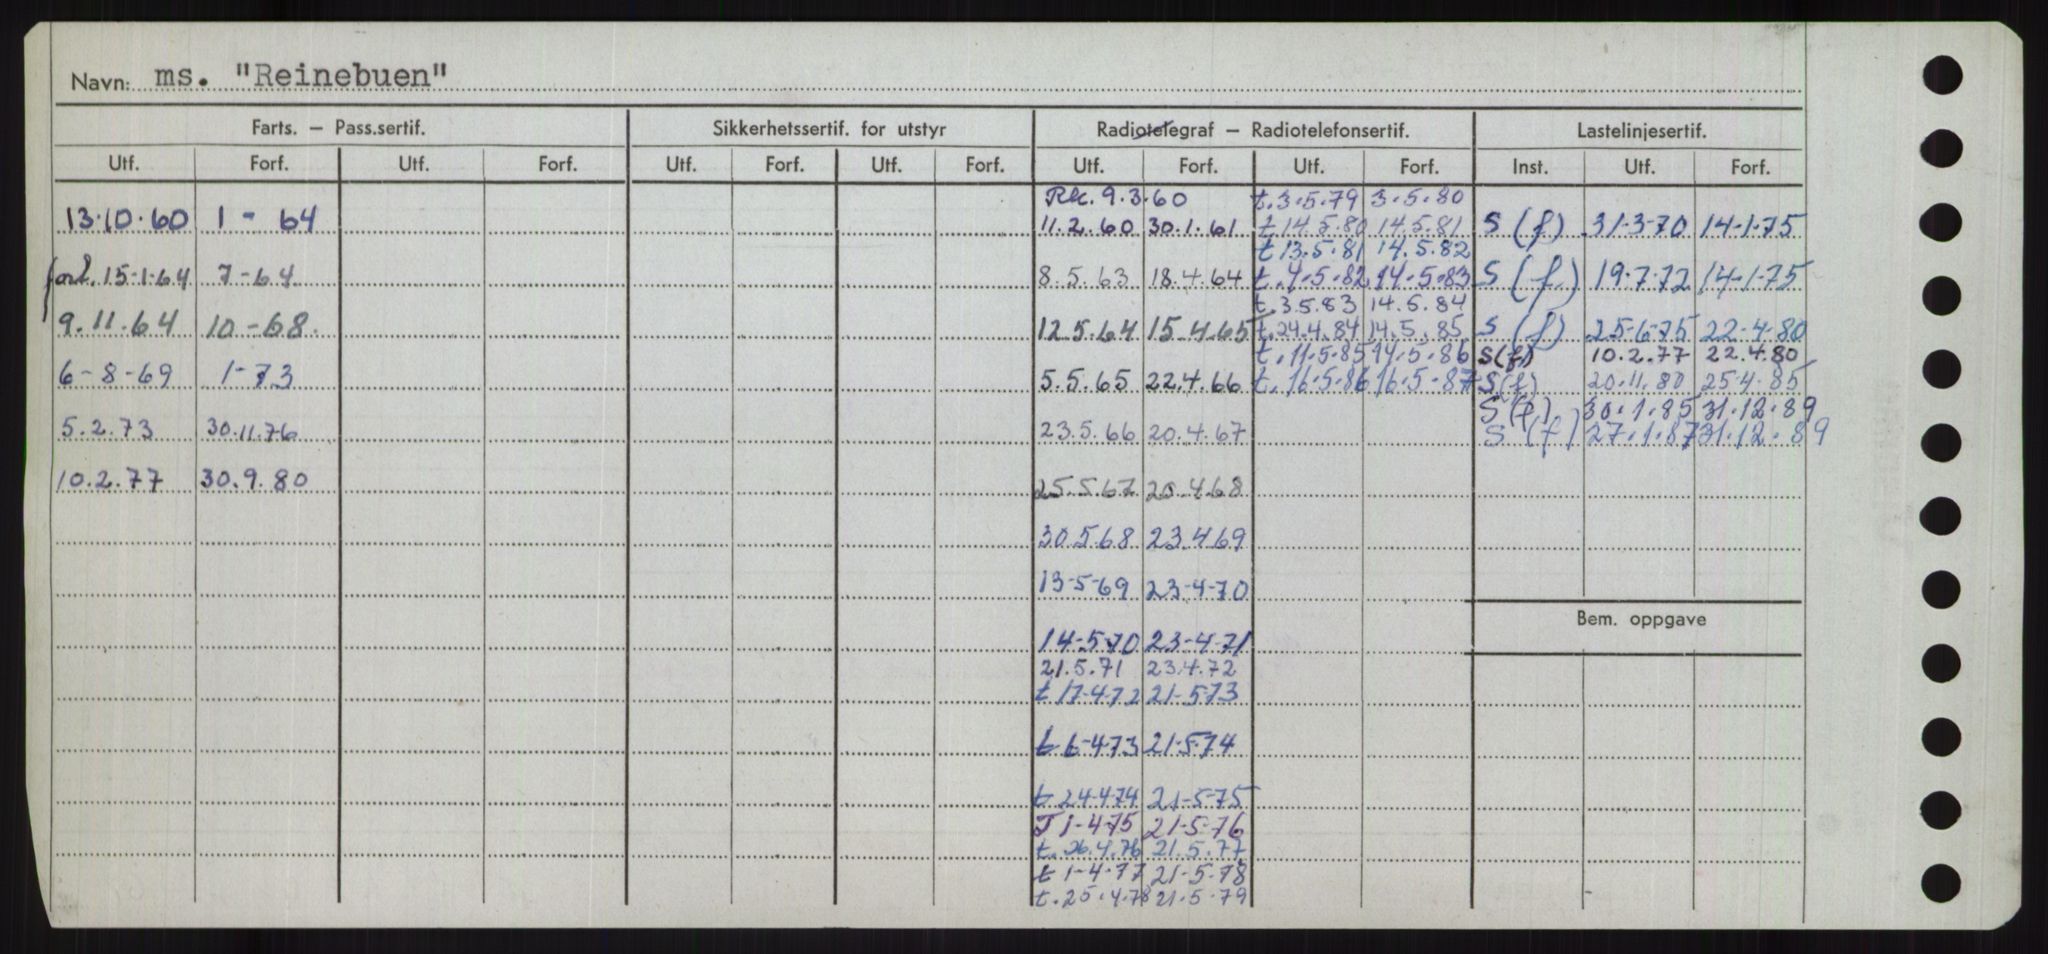 Navn: ms. "Reinebuen"
Farts. – Pass.sertif. Sikkerhetssertif. for utstyr Radiotelegraf – Radiotelefonsertif. Lastelinjesertif.
Utf. Forf. Utf. Forf. Utf. Forf. Utf. Forf. Utf. Forf. Utf. Forf. Inst. Utf. Forf.
Rk. 9.3.60 t.3.5.79 3.5.80
13.10.60 1 - 64 11.2.60 30.1.61 t 14.5.80 14.5.81 S (f) 31-3-70 14-1-75
t 13.5.81 14.5.82
forl. 15-1-64 7-64 8.5.63 18.4.64 t.4.5.82 14.5.83 S (f.) 19.7.72 14-1-75
t.3.5.83 14.5.84
9.11.64 10-68. 12.5.64 15.4.65 t.24.4.84 14.5.85 S (f) 25-6-75 22-4-80
t.11.5.85 14.5.86 S(f) 10.2.77 22.4.80
6-8-69 1-73 5.5.65 22.4.66 t.16.5.86 16.5.87 S(f) 20.11.80 25.4.85
S (f). 30.1.85 31.12.89
5.2.73 30.11.76 23.5.66 20.4.67 S (f) 27.1.87 31.12.89
10.2.77 30.9.80 25.5.67 20.4.68
30.5.68 23.4.69
13-5-69 23-4-70
Bem. oppgave
14-5-70 23-4-71
21.5.71 23.4.72
t 17-4-72 21-5-73
t 6-4-73 21-5-74
t 24-4-74 21-5-75
T 1-4-75 21-5-76
t. 26.4.76 21.5.77
t 1-4-77 21-5-78
t.25.4.78 21.5.79